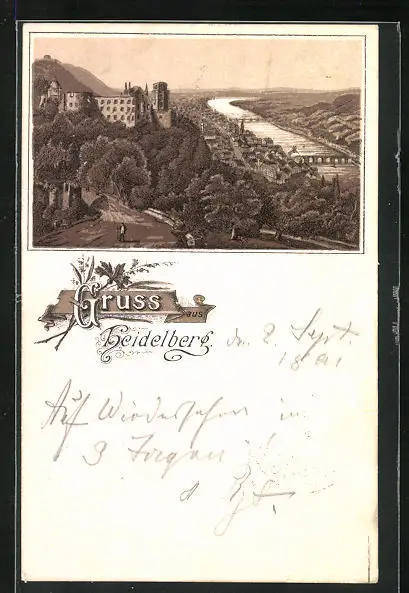 Gruss
aus
Heidelberg.
d. 2. Sept.
1891
Auf Wiedersehen in
3 Tagen